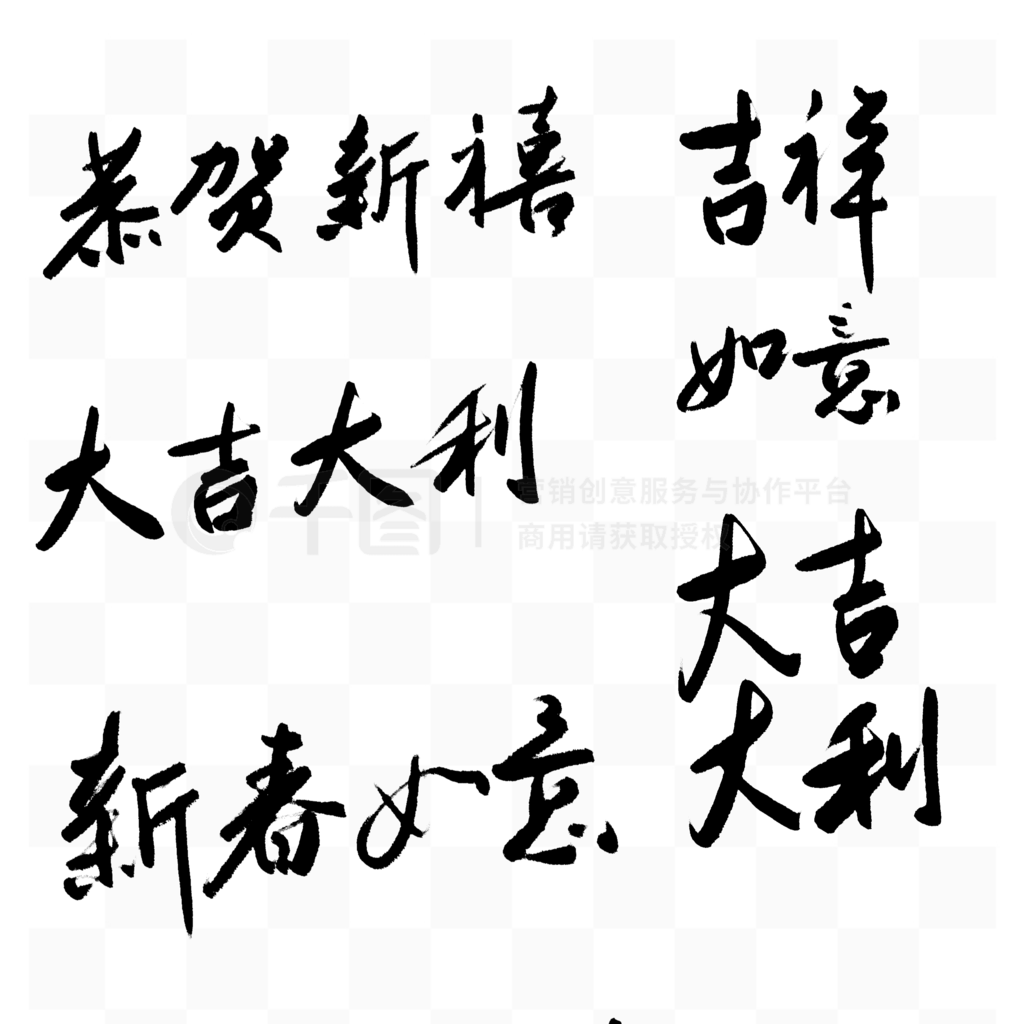 恭贺新禧
大吉大利
新春如意
吉祥
如意
大吉
大利
千图
营销创意服务与协作平台
商用请获取授权